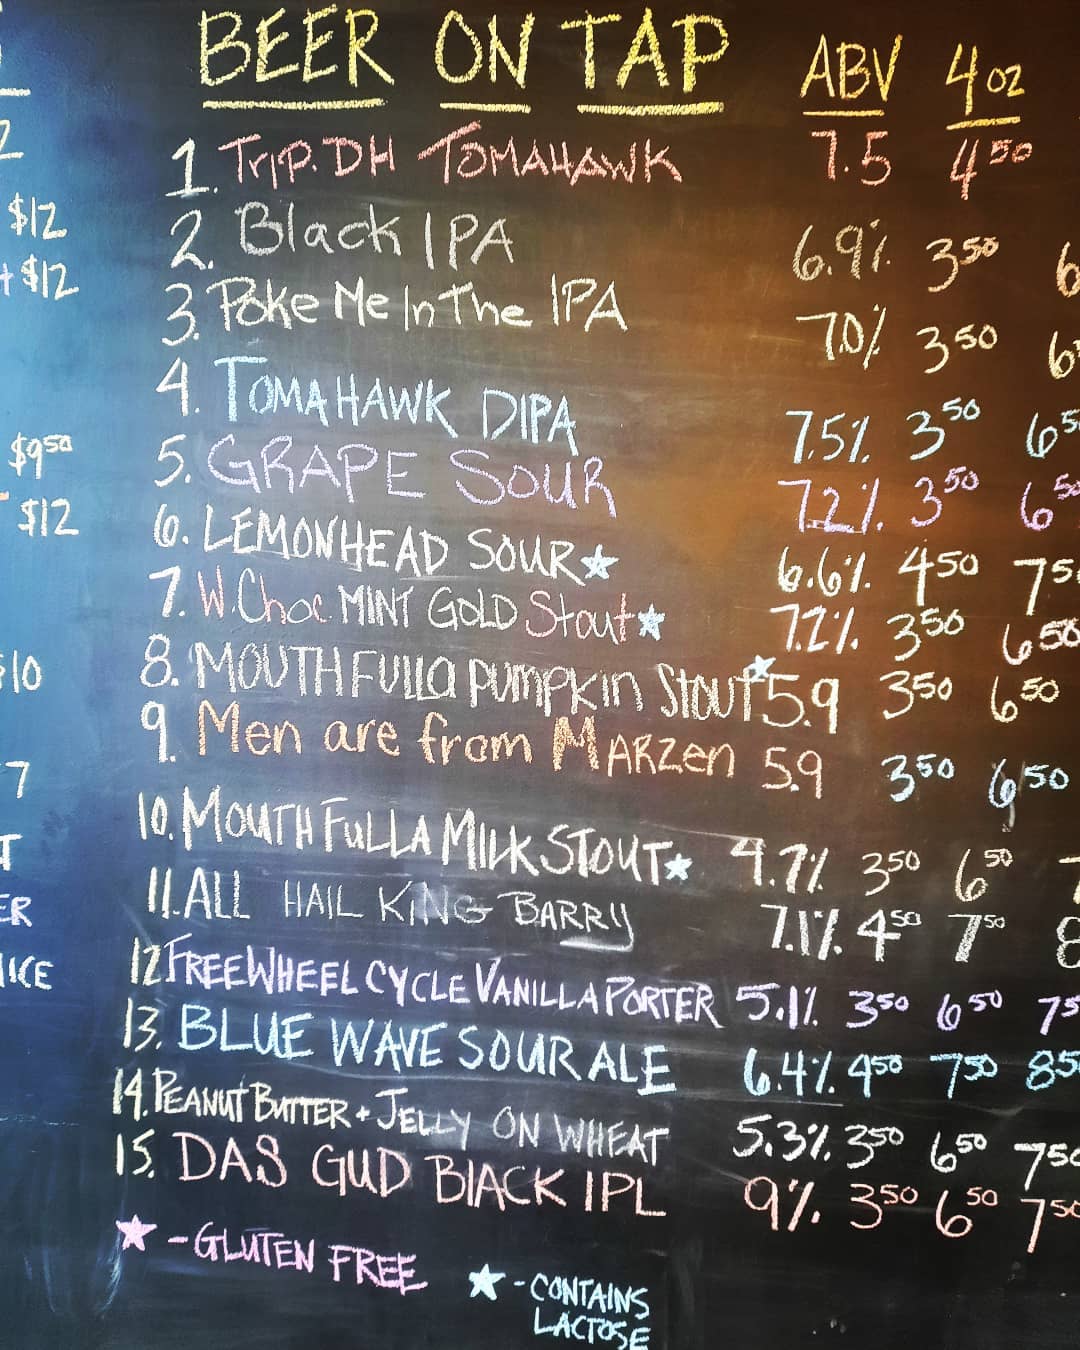 BEER ON TAP ABV 4 oz
1. Trip. DH TOMAHAWK 7.5 4 50
2. Black IPA 6.9% 3 50
3. Poke Me In The IPA 7.0% 3 50
4. TOMAHAWK DIPA 7.5% 3 50
5. GRAPE SOUR 7.2% 3 50 6 50
6. LEMONHEAD SOUR★ 6.6% 4 50 7 5
7. W. Choc. MINT GOLD Stout★ 7.2% 3 50 6 50
8. MOUTH FULLA PUMPKIN STOUT★ 5.9 3 50 6 50
9. Men are from MARZEN 5.9 3 50 6 50
10. MOUTH FULLA MILK STOUT★ 4.7% 3 50 6 50
11. ALL HAIL KING BARRY 7.1% 4 50 7 50 8
12 FREEWHEEL CYCLE VANILLA PORTER 5.1% 3 50 6 50 7 5
13. BLUE WAVE SOUR ALE 6.4% 4 50 7 50 8 5
14. PEANUT BUTTER + JELLY ON WHEAT 5.3% 3 50 6 50 7 50
15. DAS GUD BLACK IPL 9% 3 50 6 50 7 50
★ - GLUTEN FREE
★ - CONTAINS
LACTOSE
$12
$12
$9 50
$12
$10
7
ER